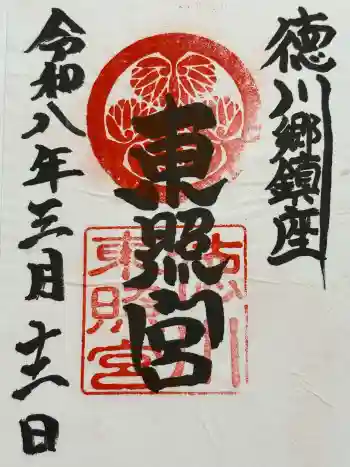 徳川郷鎮座
東照宮
令和八年三月十一日
徳川
東照宮